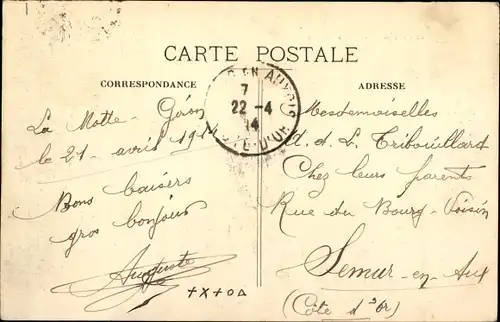 CARTE POSTALE
CORRESPONDANCE
ADRESSE
EN AUXOIS
7
22 - 4
14
COTE-D'OR
La Motte-
le 21 avril 19
Bons baisers
gros bonjour
Auguste
+X+O∆
Mesdemoiselles
A. d. L. Tribouillard
Chez leurs parents
Rue du Bourg-Voisin
Semur-en-Aux
(Côte d'Or)